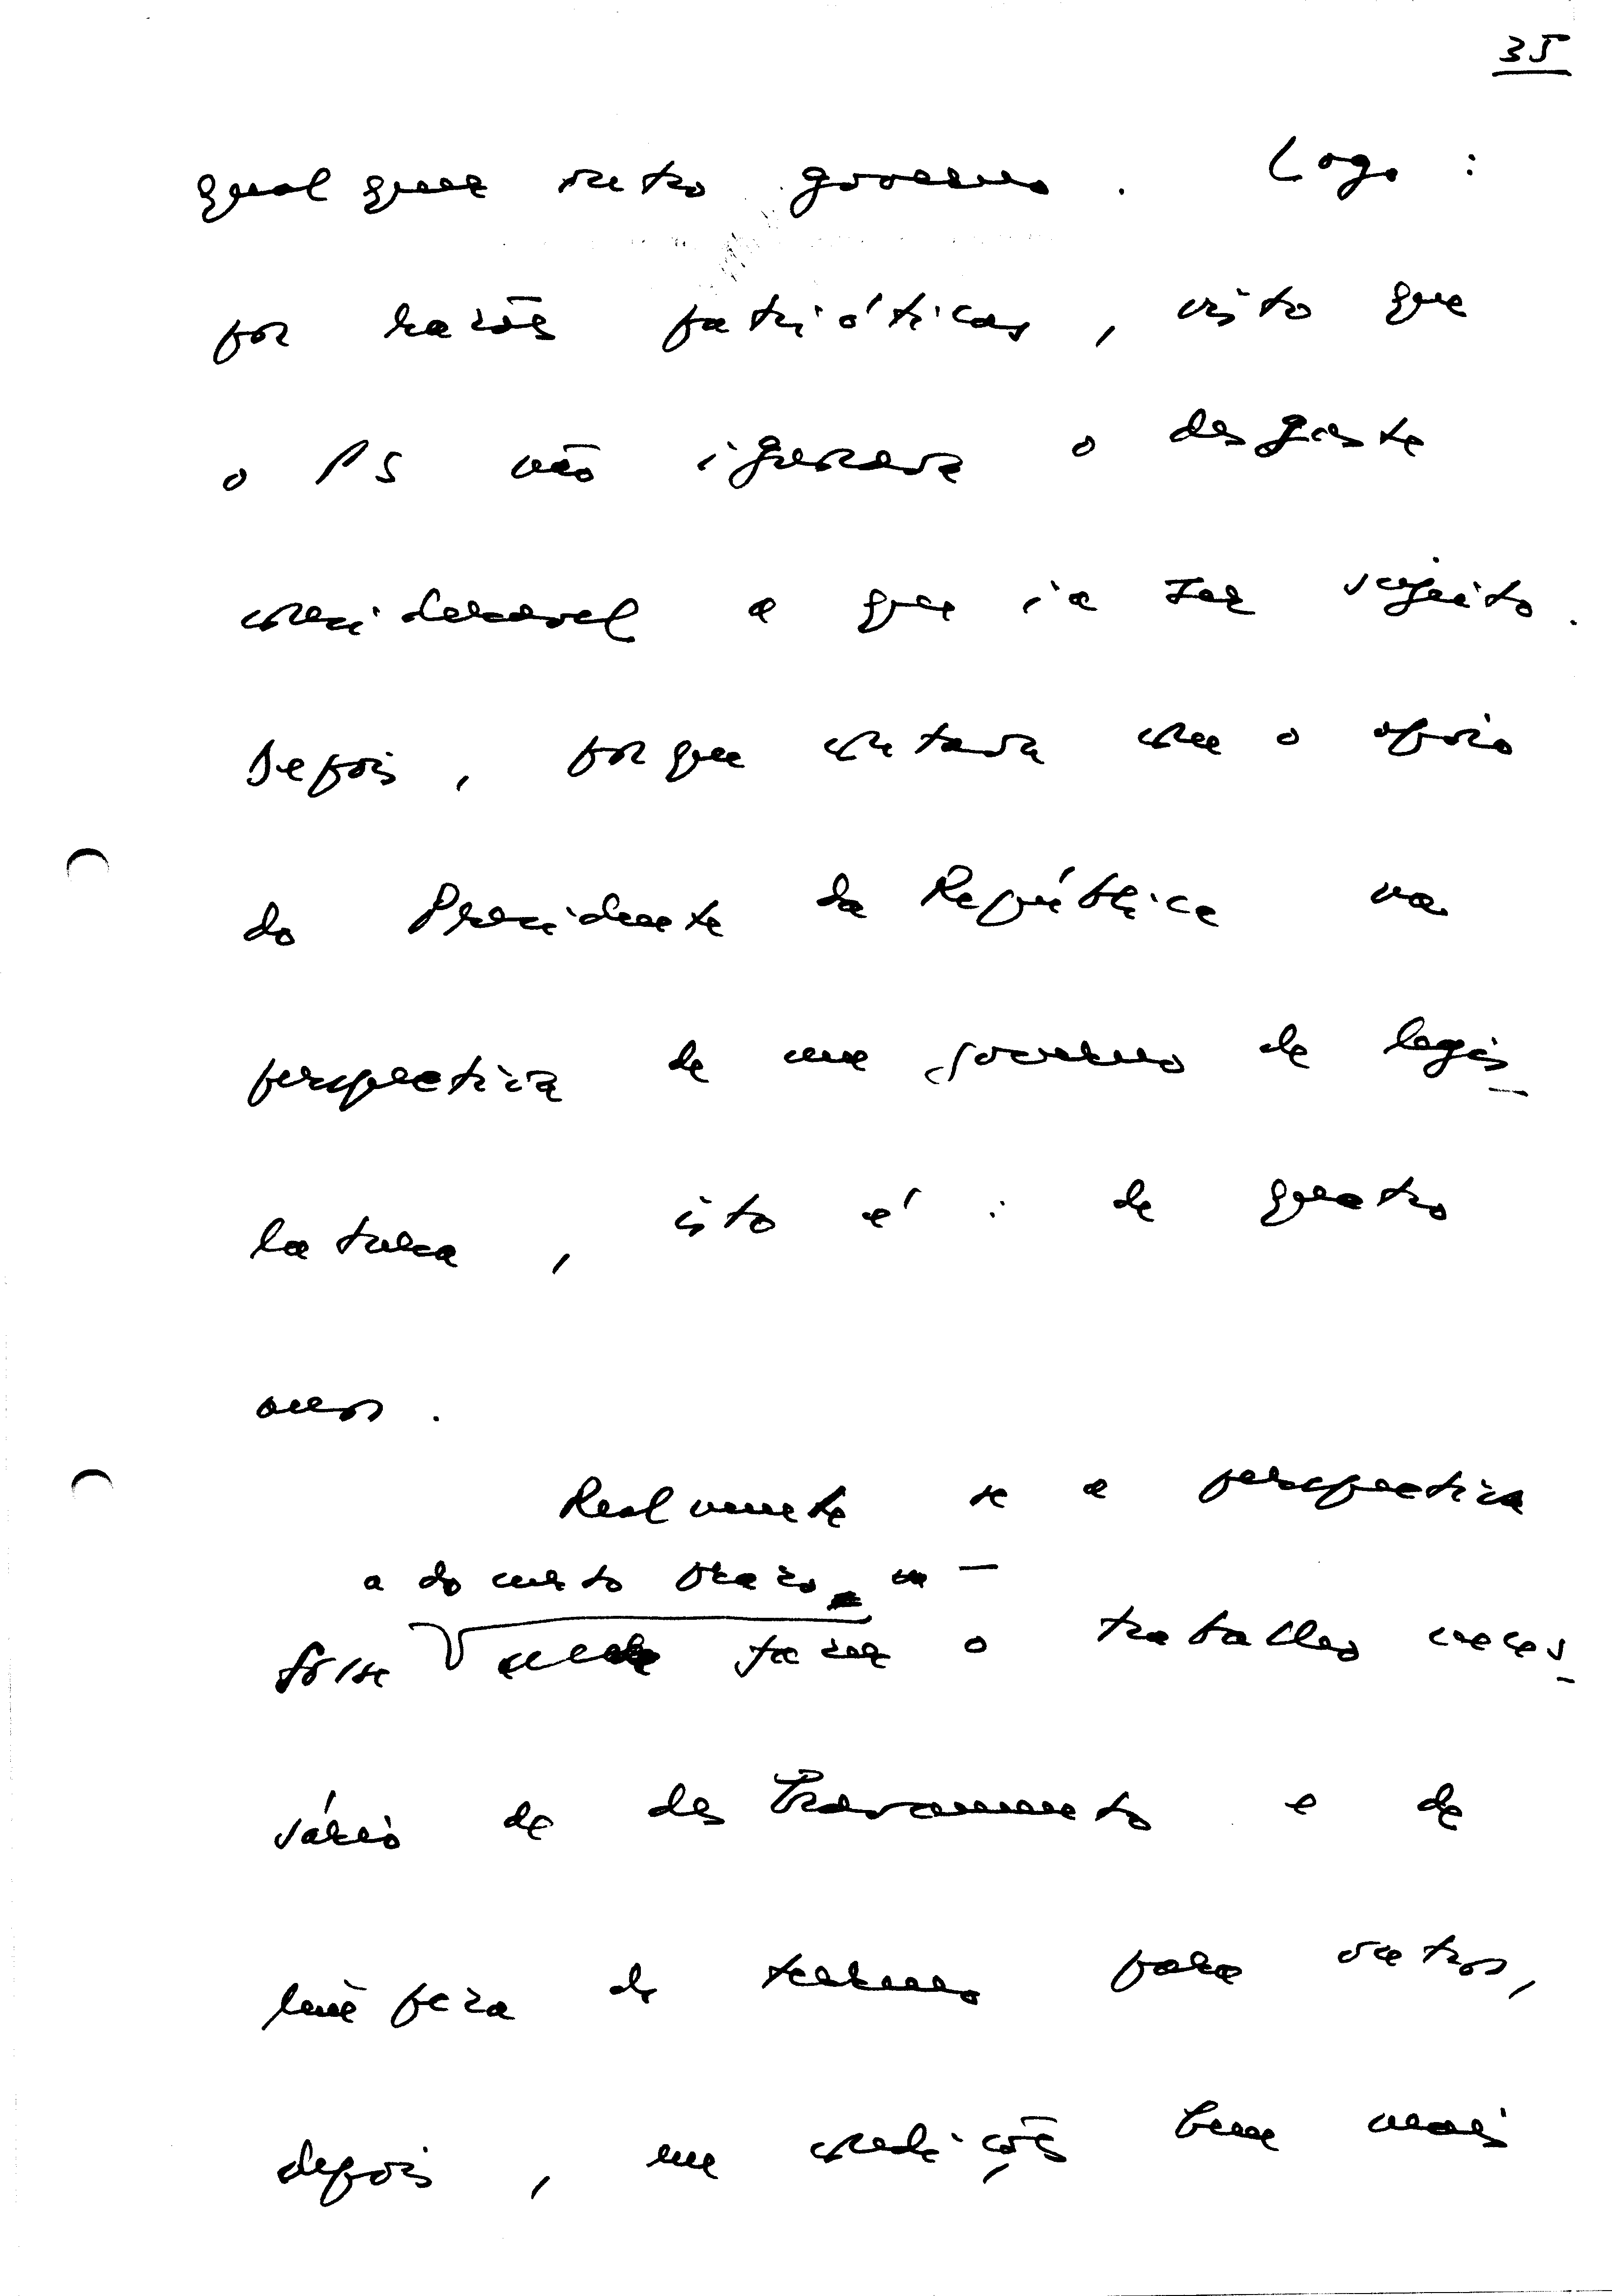 35
qualquer outro governo. Logo:
por razões patrióticas, visto que
o PS não ignorava o desgaste
considerável a que ia ser sujeito.
Depois, porque contava com o apoio
do Presidente da República na
perspectiva de um governo de legis-
latura, isto é: de quatro
anos.
Realmente se a perspectiva
a do curto prazo, —
fosse fazer o trabalho neces-
sário de destravamento e de
limpeza de terreno para outros,
depois, em condições bem mais